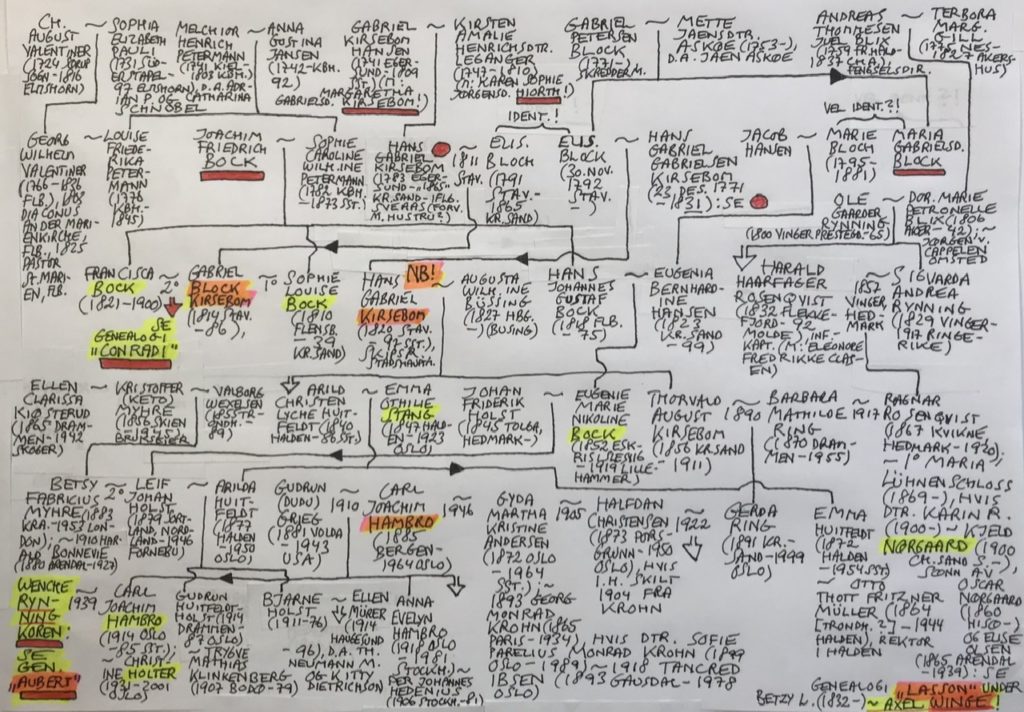 CH. AUGUST
VALENTINER
(1724 BORUP
SOGN - 1816
ELMSHORN)
~
SOPHIA
ELIZABETH
PAULI
(1731 SÜD-
ERSTAPEL-
97 ELMSHORN), D.A. ADR-
IAN P. OG CATHARINA
SCHNOBEL
MELCHIOR
HENRICH
PETERMANN
~
ANNA
GUSTINA
JANSEN
(1742-KBH.
92)
GABRIEL
KIRSEBOM
HANSEN
(1741 EGER-
SUND-1809
MARGARETHA
GABRIELSD. KIRSEBOM!)
~
KIRSTEN
AMALIE
HENRICHSDTR.
LEGANGER
(1747-1810)
M. KAREN SOPHIE
JØRGENSD. HIORTH!)
GABRIEL
PETERSEN
BLOCK
(1771-)
SKREDDERM.
~
METTE
JAENSDTR.
ASKØE (1753-),
D.A. JAEN ASKØE
ANDREAS
THOMMESEN
JUEL BLIX
1837 CHA.)
FENGSELSDIR.
~
TERBORA
MARG.
GILL
1827 AKERS-
HUS)
GEORG
WILHELM
VALENTINER
(1766-1836
FLB.), 1805
DIACONUS
AN DER MARI-
ENKIRCHE,
FLB. 1825
PASTOR
ST. MARI-
EN, FLB.
~
LOUISE
FRIEDE-
RIKA
PETER-
MANN
(1776
KBH.-
1845)
JOACHIM
FRIEDRICH
BOCK
~
SOPHIE
CAROLINE
WILH.INE
PETERMANN
(1782 KBH.
-1873 SST.)
HANS
GABRIEL
KIRSEBOM
(1783 EGER-
SUND-1865
KR.SAND-IFLG.
M. HUSTRU?)
~
1811
STAV.
IDENT.!
ELIS.
BLOCH
(1791
STAV.-
1865
KR.SAND)
ELIS.
BLOCK
(30. NOV.
1792
STAV.
-)
~
HANS
GABRIEL
GABRIELSEN
KIRSEBOM
(23. DES. 1771
-1831): SE
JACOB
HANSEN
VEL IDENT.?!
MARIE
BLOCH
(1795-
1881)
MARIA
GABRIELSD.
BLOCK
OLE
GAARDER
RYNNING
(1800 VINGER PRESTEGD.-65)
~
DOR. MARIE
PETRONELLE
BLIX (1806
AKER-42); ~
JØRGEN V.
CAPPELEN
OMSTED
FRANCISCA
BOCK
(1821-1900)
~
2°
SE
GENEALOGI
"CONRADI"
GABRIEL
BLOCK
KIRSEBOM
(1814 STAV.
-86),
~
1°
SOPHIE
LOUISE
BOCK
(1810
FLENSB.
-39
KR.SAND)
NB!
HANS
GABRIEL
KIRSEBOM
(1820 STAV.
-97 SST.),
SKIPSR.
STADSHAUPTM.
~
AUGUSTA
WILH.INE
BÜSSING
(1827 HBG.
-) (BUSING)
HANS
JOHANNES
GUSTAF
BOCK
(1818 FLB.
-75)
~
EUGENIA
BERNHARD-
INE
HANSEN
(1823
KR.SAND
-99)
HARALD
HAARFAGER
ROSENQVIST
(1832 FLEKKE-
FJORD-92
MOLDE), INF.-
KAPT. (M: ELEONORE
FREDRIKKE CLAS-
EN)
~
1857
VINGER
HED-
MARK
SIGVARDA
ANDREA
RYNNING
(1829 VINGER-
1917 RINGE-
RIKE)
ELLEN
CLARISSA
KIØSTERUD
(1865 DRAM-
MEN-1942
SKOGER)
~
KRISTOFFER
(KETO)
MYHRE
(1856 SKIEN
-1945)
~
VALBORG
WEXELSEN
(1855 TR-
ONDH.-
89)
CHRISTEN
LYCHE HUIT-
FELDT (1840
HALDEN-86 SST.)
ARILD
~
EMMA
OTHILIE
STANG
(1847 HALD-
EN-1923
OSLO)
JOHAN
FRIDERIK
HOLST
(1845 TOLGA,
HEDMARK-)
~
EUGENIE
MARIE
NIKOLINE
BOCK
(1852 ESK-
RIS, SLESVIG
-1919 LILLE-
HAMMER)
THORVALD
AUGUST
KIRSEBOM
(1856 KR.SAND
-1911)
~
1890
BARBARA
MATHILDE
RING
(1870 DRAM-
MEN-1955)
~
1917
RAGNAR
ROSENQVIST
(1867 KVIKNE
HEDMARK-1920);
~ 1° MARIA
LÜHNENSCHLOSS
(1869-), HVIS
DTR. KARIN R.
(1900-) ~ KJELD
NØRGAARD (1900
CH.SAND S.-),
SØNN AV
OSCAR
NØRGAARD
(1860
HISCO-)
OG ELISE
OLSEN
(1865 ARENDAL
-1939): SE
GENEALOGI "LASSON" UNDER
BETZY L. (1832-) ~ AXEL WINGE!
BETSY
FABRICIUS
MYHRE (1883
KRA.-1953 LON-
DON); ~1910 HAR-
ALD BONNEVIE
(1880 ARENDAL-1927)
~
2°
LEIF
JOHAN
HOLST
(1879 SORT-
LAND, NORD-
LAND-1946
FORNEBU)
~
ARILDA
HUIT-
FELDT
(1877
HALDEN
-1950
OSLO)
GUDRUN
(DUDU)
GRIEG
(1881 VOLDA
-1943
USA)
~
1910
CARL
JOACHIM
HAMBRO
(1885
BERGEN-
1964 OSLO)
~
1946
GYDA
MARTHA
KRISTINE
ANDERSEN
(1872 OSLO
-1964
SST.); ~
1893 GEORG
MONRAD
KROHN (1865
PARIS-1934), HVIS DTR. SOFIE
PARELIUS MONRAD KROHN (1899
OSLO-1989) ~ 1918 TANCRED
IBSEN (1893 GAUSDAL-1978
OSLO)
~
1905
HALFDAN
CHRISTENSEN
(1873 PORS-
GRUNN-1950
OSLO), HVIS
I.H. SKILT
1904 FRA
KROHN
~
1922
GERDA
RING
(1891 KR.-
SAND-1999
OSLO)
EMMA
HUITFELDT
(1872
HALDEN
-1954 SST)
~ OTTO
THOTT FRITZNER
MÜLLER (1864
[TRONDH.?]-1944
HALDEN), REKTOR
WENCHE
RYN-
NING
KOREN:
SE
GEN.
"AUBERT"
~
1939
CARL
JOACHIM
HAMBRO
(1914 OSLO
-85 SST.);
~ CHRIST-
INE HOLTER
(1931-2001
OSLO)
GUDRUN
HUITFELDT-
HOLST (1914
DRAMMEN-
87 OSLO)
~ TRYGVE
MATHIAS
KLINKENBERG
(1907 BODØ-79)
BJARNE
HOLST
(1911-76)
~
ELLEN
MÜRER
(1914
HAUGESUND
-96), D.A. TH.
NEUMANN M.
OG KITTY
DIETRICHSON
ANNA
EVELYN
HAMBRO
(1918 OSLO
-1981
STOCKH.) ~
PER JOHANNES
HEDENIUS
(1906 STOCKH.-81)